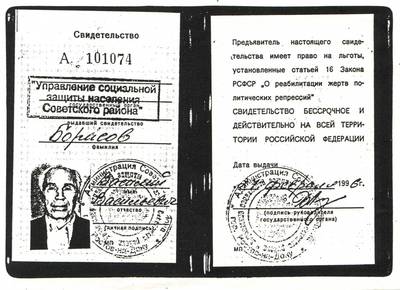 Свидетельство
А 101074
"Управление социальной
защиты населения
Советского района"
выдавший свидетельство
Борисов
фамилия
отчество
(личная подпись)
МП
Ростов-на-Дону
Предъявитель настоящего свиде-
тельства имеет право на льготы,
установленные статьей 16 Закона
РСФСР „О реабилитации жертв по-
литических репрессий"
СВИДЕТЕЛЬСТВО БЕССРОЧНОЕ И
ДЕЙСТВИТЕЛЬНО НА ВСЕЙ ТЕРРИ-
ТОРИИ РОССИЙСКОЙ ФЕДЕРАЦИИ
Дата выдачи
февраля 1996г.
(подпись руководителя
государственного органа)
МП